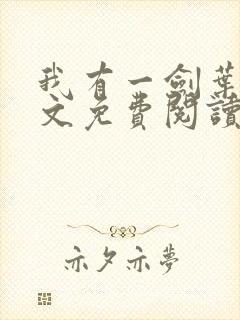 我有一剑葉
文免費閱讀
亦夕亦夢